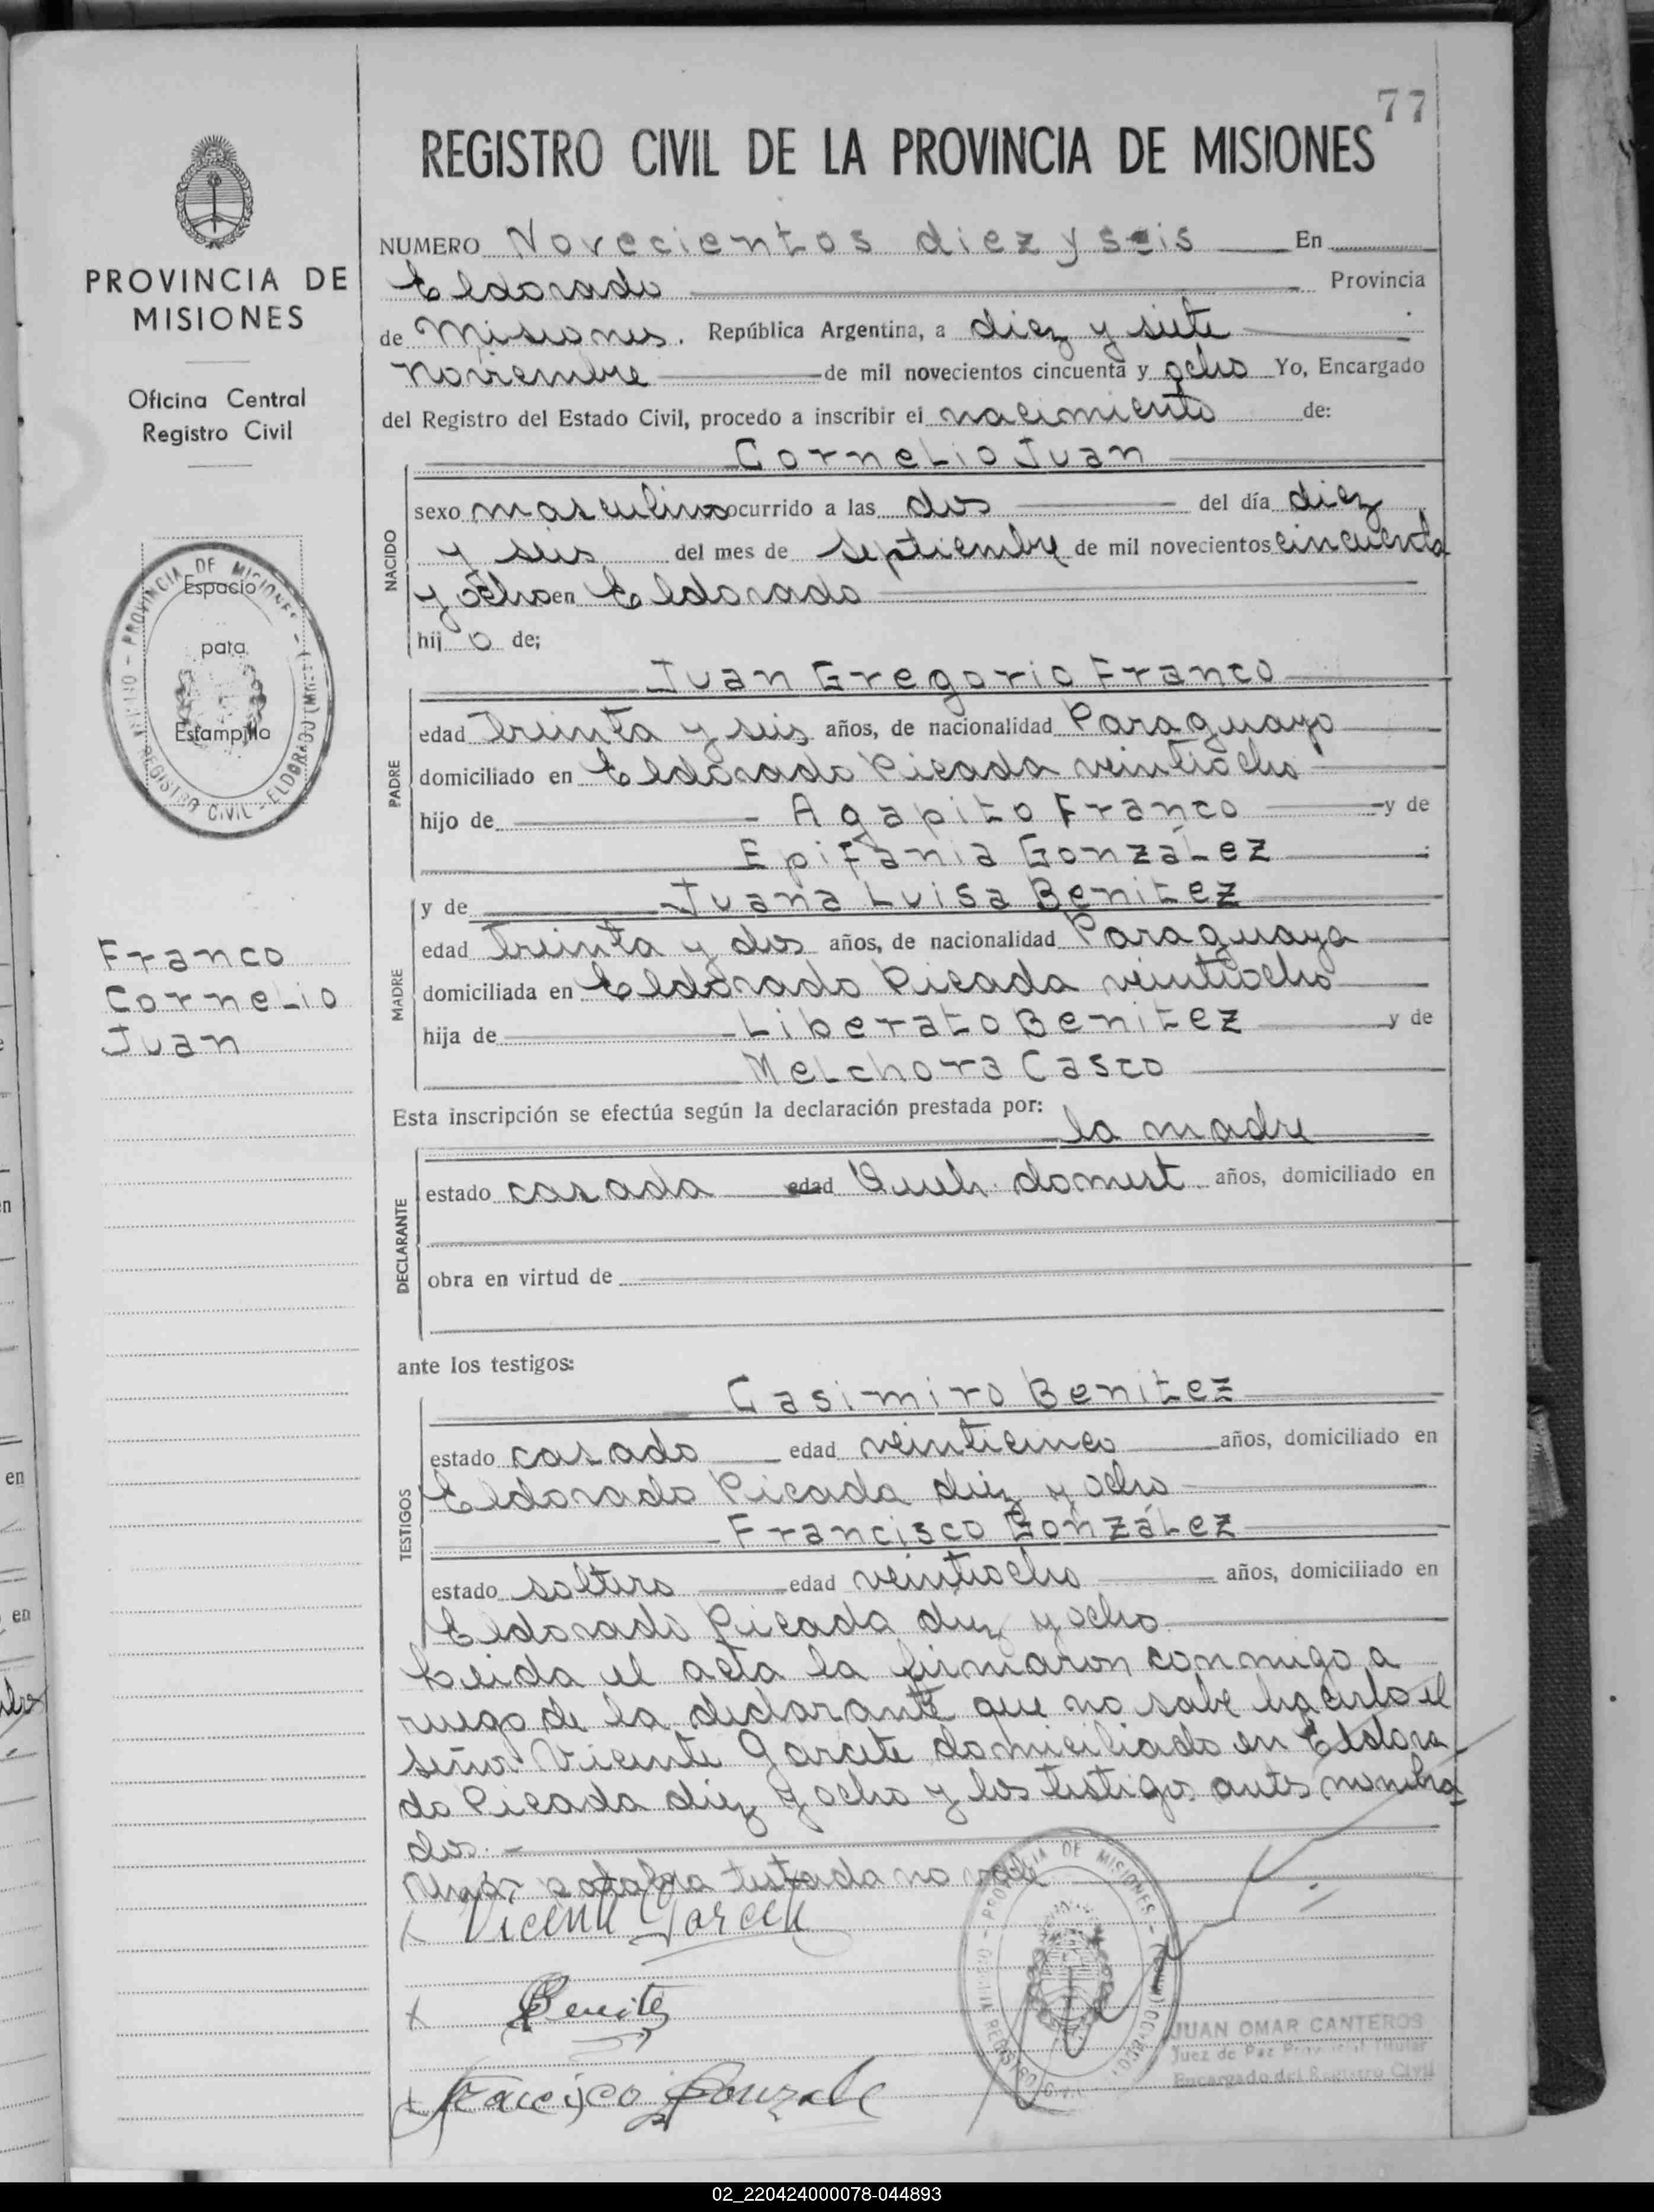 77
REGISTRO CIVIL DE LA PROVINCIA DE MISIONES
PROVINCIA DE
MISIONES
Oficina Central
Registro Civil
Espacio
pata
Estampilla
PROVINCIA DE MISIONES
REGISTRO CIVIL - ELDORADO
Franco
Cornelio
Juan
NUMERO Novecientos diez y seis En
Eldorado Provincia
de Misiones. República Argentina, a diez y siete
Noviembre de mil novecientos cincuenta y ocho Yo, Encargado
del Registro del Estado Civil, procedo a inscribir el nacimiento de:
Cornelio Juan
NACIDO
sexo masculino ocurrido a las dos del día diez
y seis del mes de septiembre de mil novecientos cincuenta
y ocho en Eldorado
hij o de;
Juan Gregorio Franco
PADRE
edad Treinta y seis años, de nacionalidad Paraguayo
domiciliado en Eldorado Picada veintiocho
hijo de Agapito Franco y de
Epifania González
MADRE
y de Juana Luisa Benitez
edad Treinta y dos años, de nacionalidad Paraguaya
domiciliada en Eldorado Picada veintiocho
hija de Liberato Benitez y de
Melchora Casco
Esta inscripción se efectúa según la declaración prestada por:
la madre
DECLARANTE
estado casada edad Queh. domest años, domiciliado en
obra en virtud de
ante los testigos:
TESTIGOS
Casimiro Benitez
estado casado edad veinticinco años, domiciliado en
Eldorado Picada diez y ocho
Francisco González
estado soltero edad veintiocho años, domiciliado en
Eldorado Picada diez y ocho
Leida el acta la firmaron conmigo a
ruego de la declarante que no sabe hacerlo el
señor Vicente Garcete domiciliado en Eldora
do Picada diez y ocho y los testigos antes nombra
dos.-
Una palabra testada no vale
x Vicente Garcete
x Benitez
x Francisco Gonzale
PROVINCIA DE MISIONES
JUAN OMAR CANTEROS
Juez de Paz Provincial Titular
Encargado del Registro Civil
02_220424000078-044893